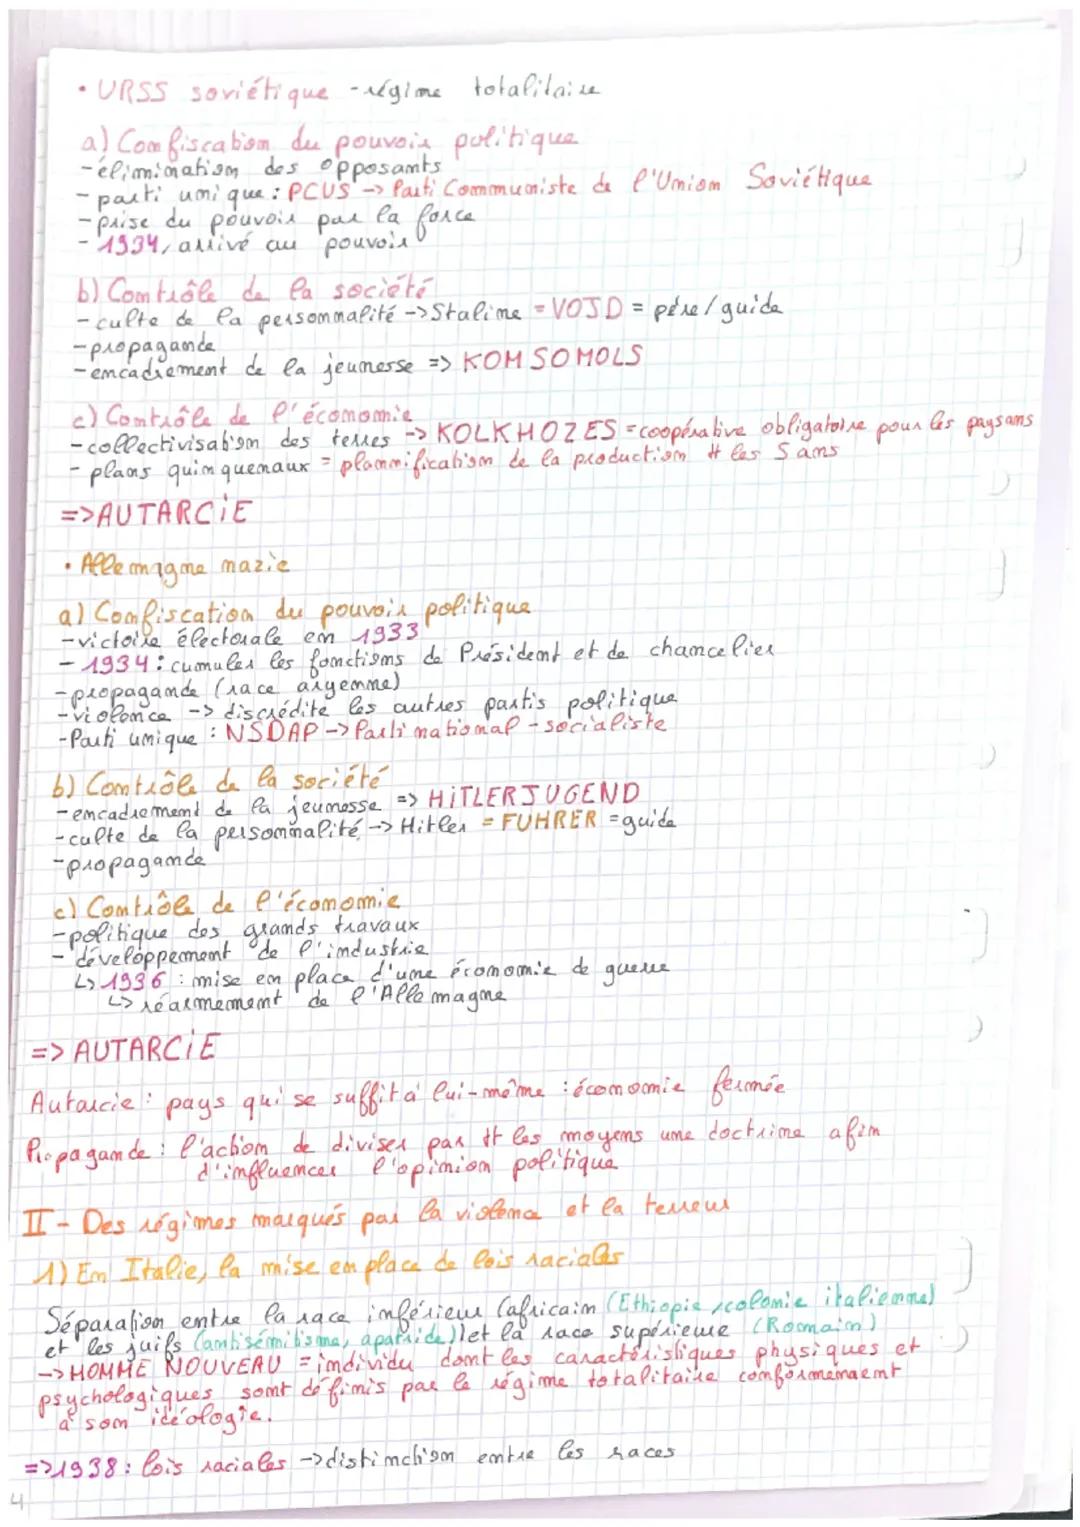 • URSS soviétique - régime totalitaire
a) Comfiscation du pouvoir politique
- élimination des opposants
- parti unique : PCUS -> Parti Communiste de l'Union Soviétique
- prise du pouvoir par la force
- 1934, arrivé au pouvoir
b) Contrôle de la société
- culte de la personnalité -> Staline = VOJD = père / guide
- propagande
- encadrement de la jeunesse => KOMSOMOLS
c) Contrôle de l'économie
- collectivisation des terres -> KOLKHOZES = coopérative obligatoire pour les paysans
- plans quinquenaux = plannification de la production tt les 5 ans
=> AUTARCIE
• Allemagne nazie
a) Comfiscation du pouvoir politique
- victoire électorale en 1933
- 1934 : cumuler les fonctions de Président et de chancelier
- propagande (race aryenne)
- violence -> discrédite les autres partis politique
- Parti unique : NSDAP -> Parti national - socialiste
b) Contrôle de la société
- encadrement de la jeunesse => HITLERJUGEND
- culte de la personnalité -> Hitler = FUHRER = guide
- propagande
c) Contrôle de l'économie
- politique des grands travaux
- développement de l'industrie
↳ 1936 : mise en place d'une économie de guerre
↳ réarmement de l'Allemagne
=> AUTARCIE
Autarcie : pays qui se suffit à lui-même : économie fermée
Propagande : l'action de diviser par tt les moyens une doctrine afin
d'influencer l'opinion politique
II - Des régimes marqués par la violence et la terreur
1) En Italie, la mise en place de lois raciales
Séparation entre la race inférieur (africain (Ethiopie, colonie italienne)
et les juifs (antisémitisme, apatride)) et la race supérieure (Romain)
-> HOMME NOUVEAU = individu dont les caractéristiques physiques et
psychologiques sont définis par le régime totalitaire conformemaemt
à son idéologie.
=> 1938 : lois raciales -> distinction entre les races
4